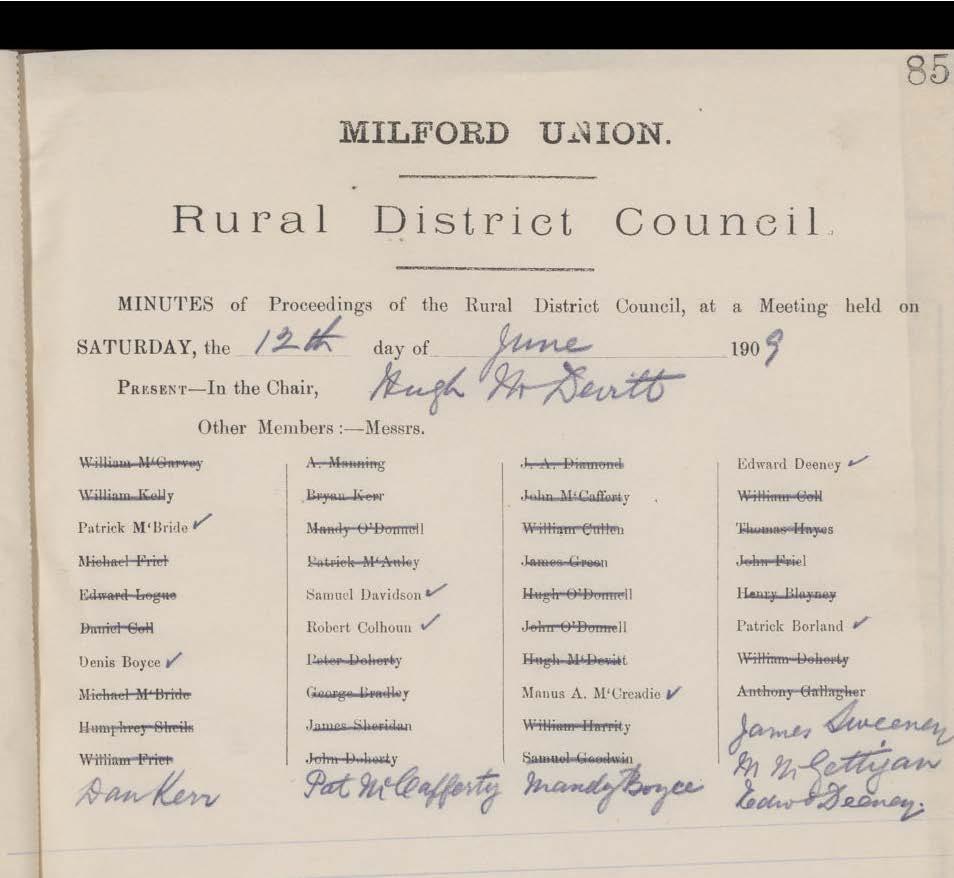 85
MILFORD UNION.
Rural District Council.
MINUTES of Proceedings of the Rural District Council, at a Meeting held on
SATURDAY, the 12th day of June 1909
PRESENT—In the Chair, Hugh McDevitt
Other Members :—Messrs.
William M‘Garvey
William Kelly
Patrick M‘Bride ✓
Michael Friel
Edward Logue
Daniel Coll
Denis Boyce ✓
Michael M‘Bride
Humphrey Sheils
William Friel
Dan Kerr
A. Manning
Bryan Kerr
Mandy O’Donnell
Patrick M‘Auley
Samuel Davidson ✓
Robert Colhoun ✓
Peter Doherty
George Bradley
James Sheridan
John Doherty
Pat McCafferty
J. A. Diamond
John M‘Cafferty
William Cullen
James Green
Hugh O’Donnell
John O’Donnell
Hugh M‘Devitt
Manus A. M‘Creadie ✓
William Harrity
Samuel Goodwin
Mandy Boyce
Edward Deeney ✓
William Coll
Thomas Hayes
John Friel
Henry Blayney
Patrick Borland ✓
William Doherty
Anthony Gallagher
James Sweeney
M McGettigan
Edwd Deeney.